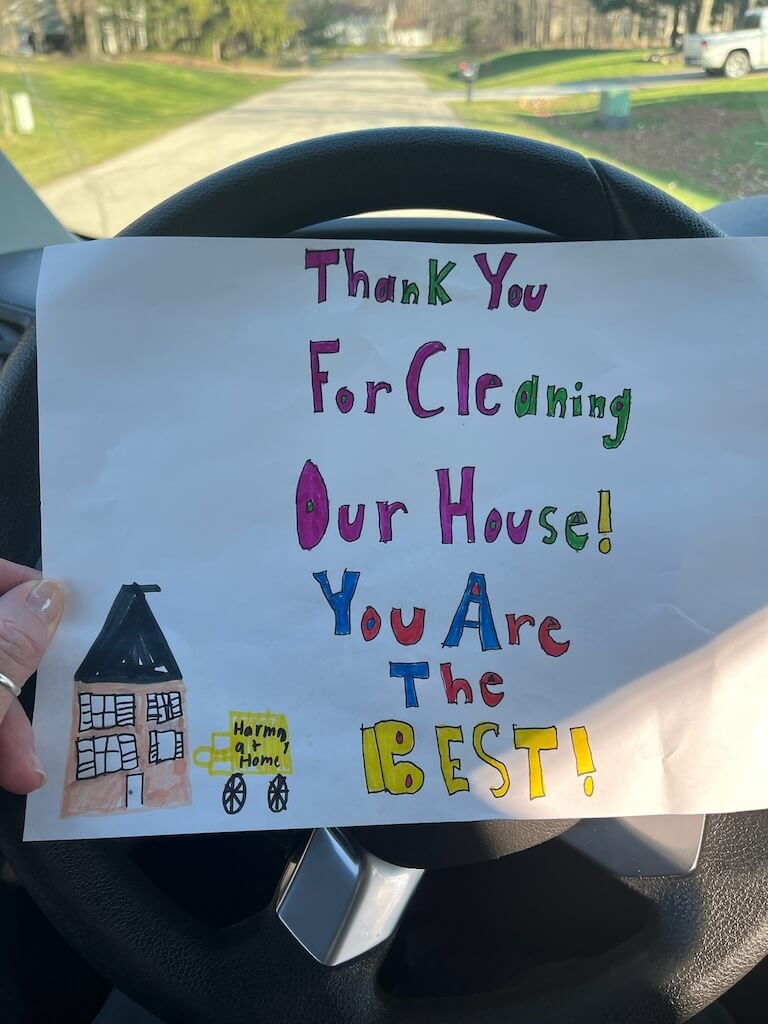 Thank You
For Cleaning
Our House!
You Are
The
BEST!
Harmony
at
Home